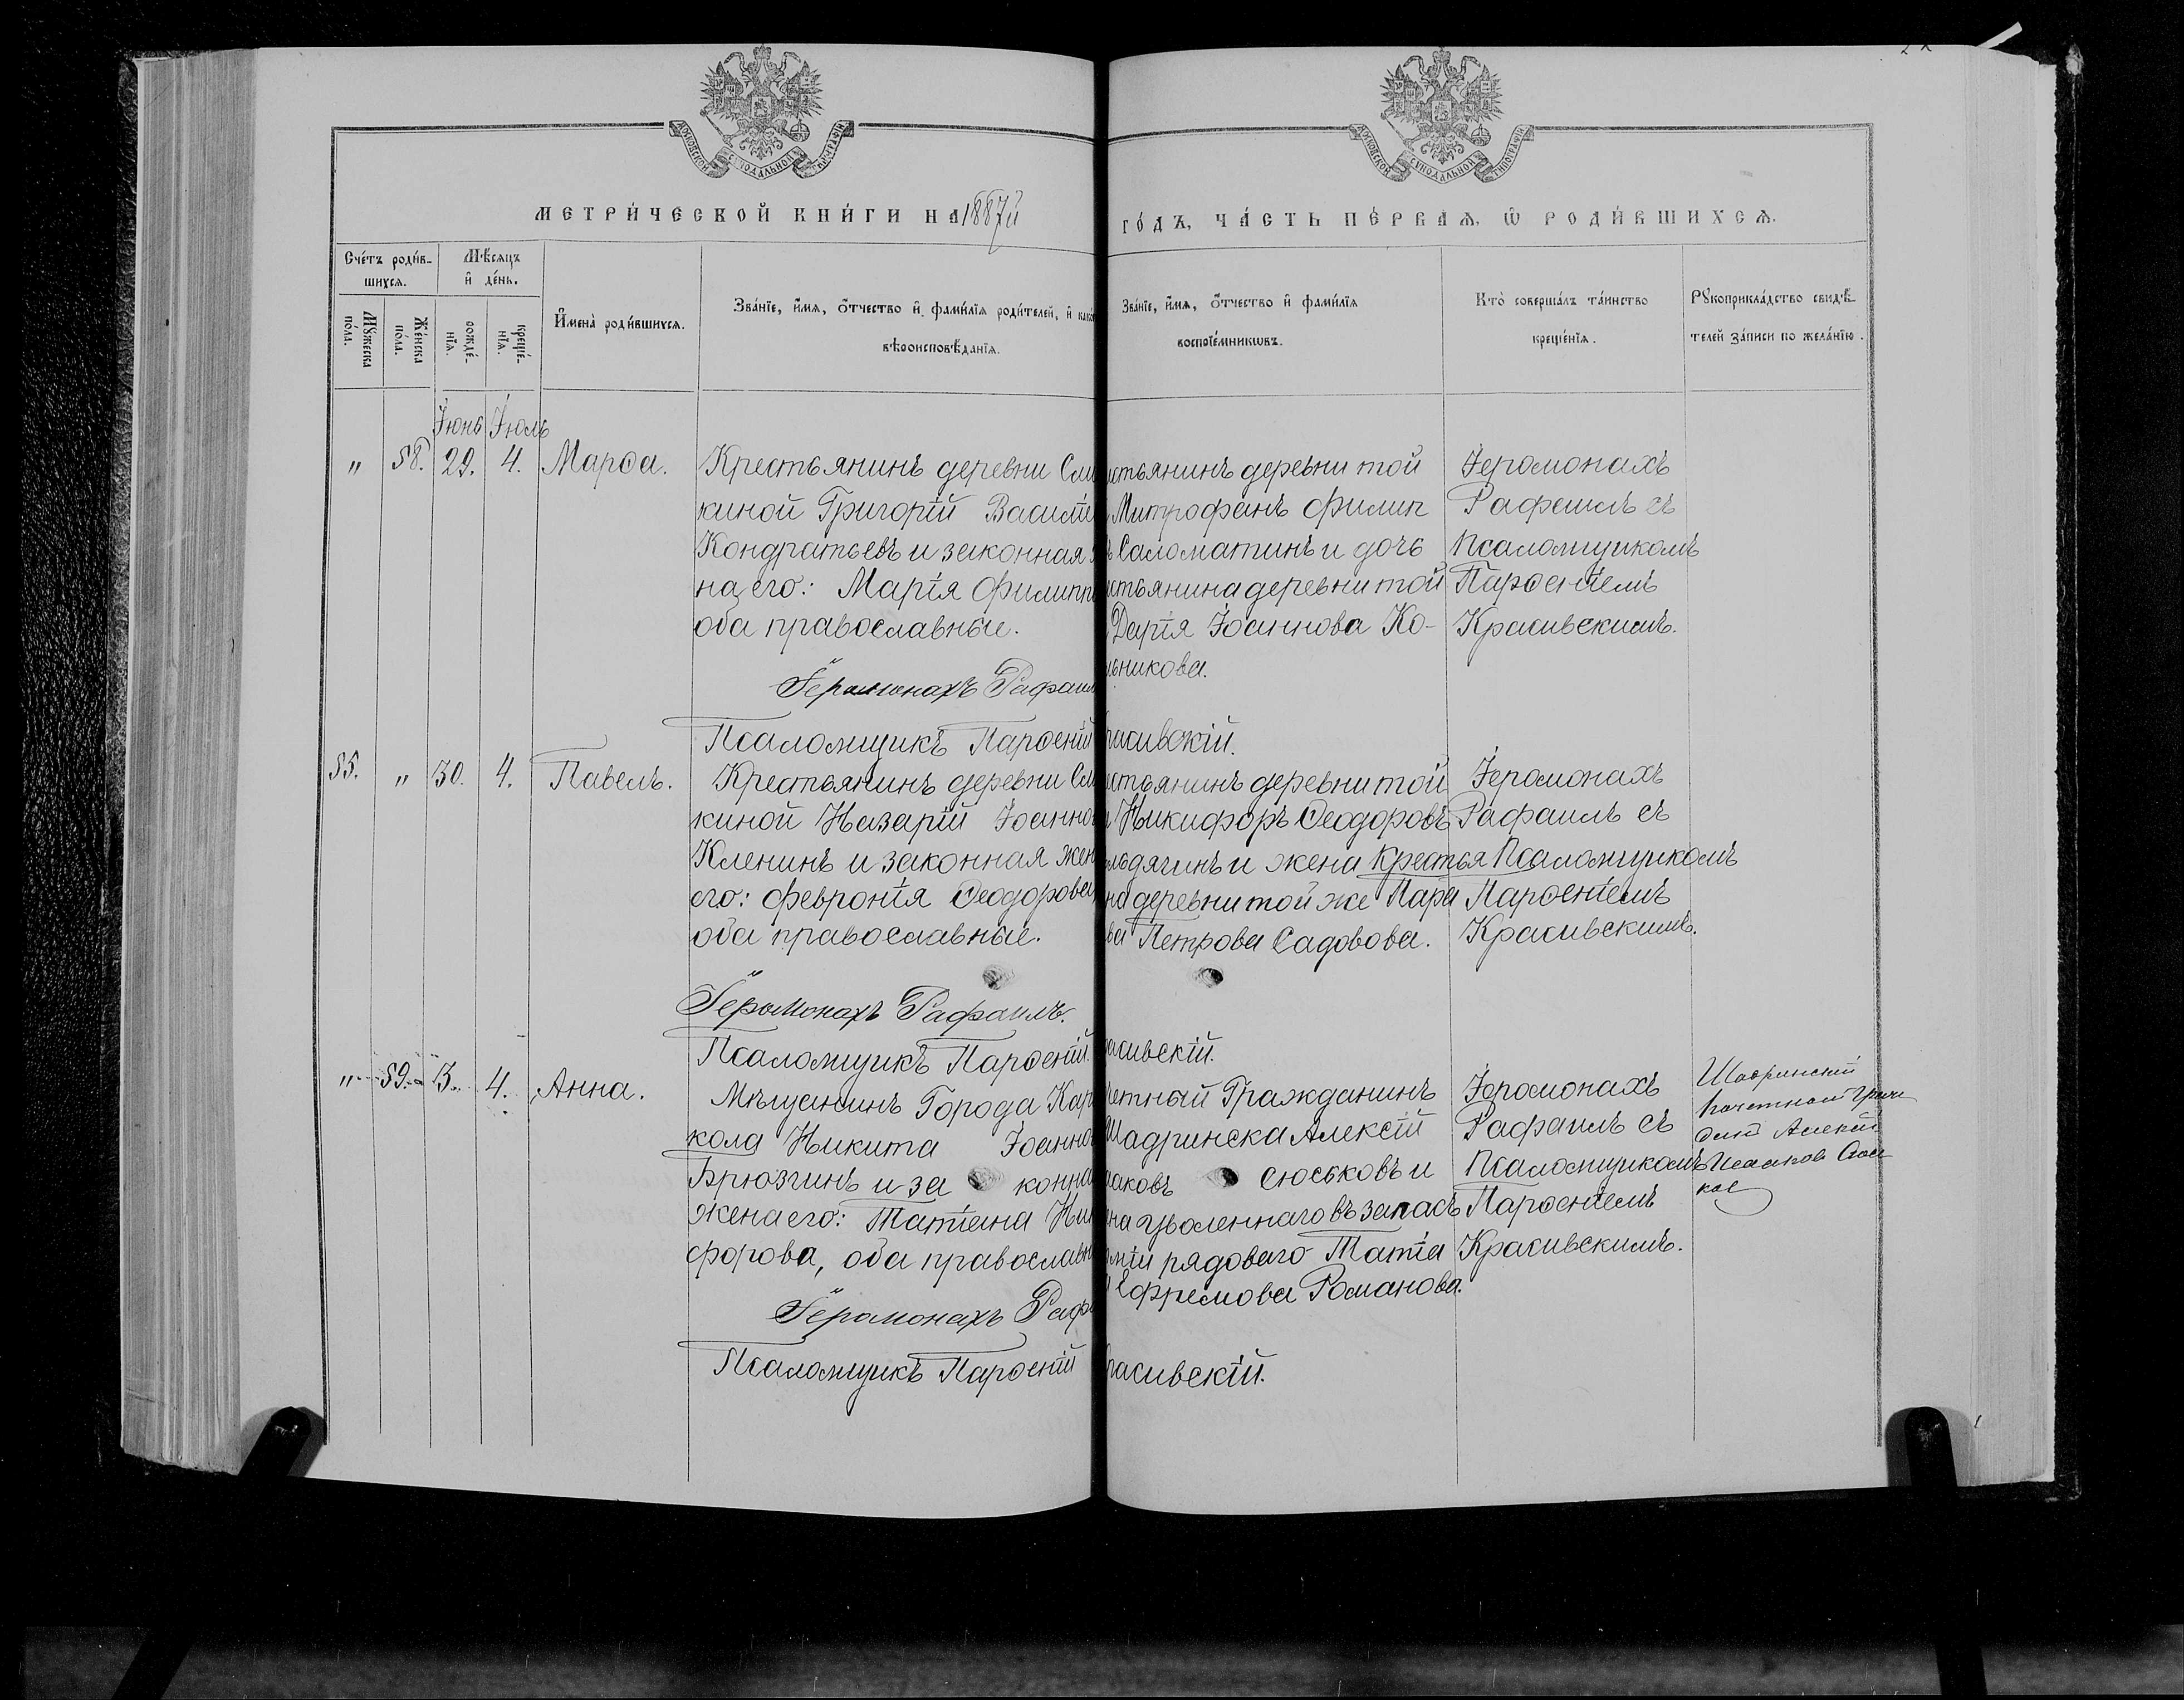 МЕТРИЧЕСКОЙ КНИГИ НА 1887й
ГОДЪ, ЧАСТЬ ПЕРВАЯ, Ѡ РОДИВШИХСЯ.
Счетъ родив-
шихся.
Мѣсяцъ
и день.
Мужеска
пола.
Женска
пола.
рожде-
нія.
креще-
нія.
Имена родившихся.
Званіе, имя, отчество и фамилія родителей, и како
вѣроисповѣданія.
Званіе, имя, отчество и фамилія
воспріемниковъ.
Кто совершалъ таинство
крещенія.
Рукоприкладство свидѣ-
телей записи по желанію.
Іюнь Іюль
" 58. 29. 4. Марѳа.
Крестьянинъ деревни Сли
киной Григорій Василіе
Кондратьевъ и законная
на его: Марія Филипп
оба православные.
Іеромонахъ Рафаил
Псаломщикъ Парѳеній
стьянинъ деревни той
Митрофанъ Филип
Саломатинъ и дочь
стьянина деревни той
Дарія Іоаннова Ко-
льникова.
расивскій.
Іеромонахъ
Рафаилъ съ
Псаломщикомъ
Парѳеніемъ
Красивскимъ.
55. " 30. 4. Павелъ.
Крестьянинъ деревни Сл
киной Назарій Іоанно
Кленинъ и законная жен
его: Февронія Ѳеодорова,
оба православные.
Іеромонахъ Рафаилъ.
Псаломщикъ Парѳеній.
стьянинъ деревни той
Никифоръ Ѳеодоровъ
льдячинъ и жена Крестья
на деревни той же Пара
ва Петрова Садовова.
расивскій.
Іеромонахъ
Рафаилъ съ
Псаломщикомъ
Парѳеніемъ
Красивскимъ.
" 59. 3. 4. Анна.
Мѣщанинъ Города Кар
кола Никита Іоанно
Брюзгинъ и за конна
жена его: Татіана Ни
форова, оба православн
Іеромонахъ Рафа
Псаломщикъ Парѳеній
четный Гражданинъ
Шадринска Алексій
аковъ Сюськовъ и
на уволеннаго въ запасъ
рміи рядоваго Татіа
Ефремова Романова.
расивскій.
Іеромонахъ
Рафаилъ съ
Псаломщикомъ
Парѳеніемъ
Красивскимъ.
Шадринский
Алексей